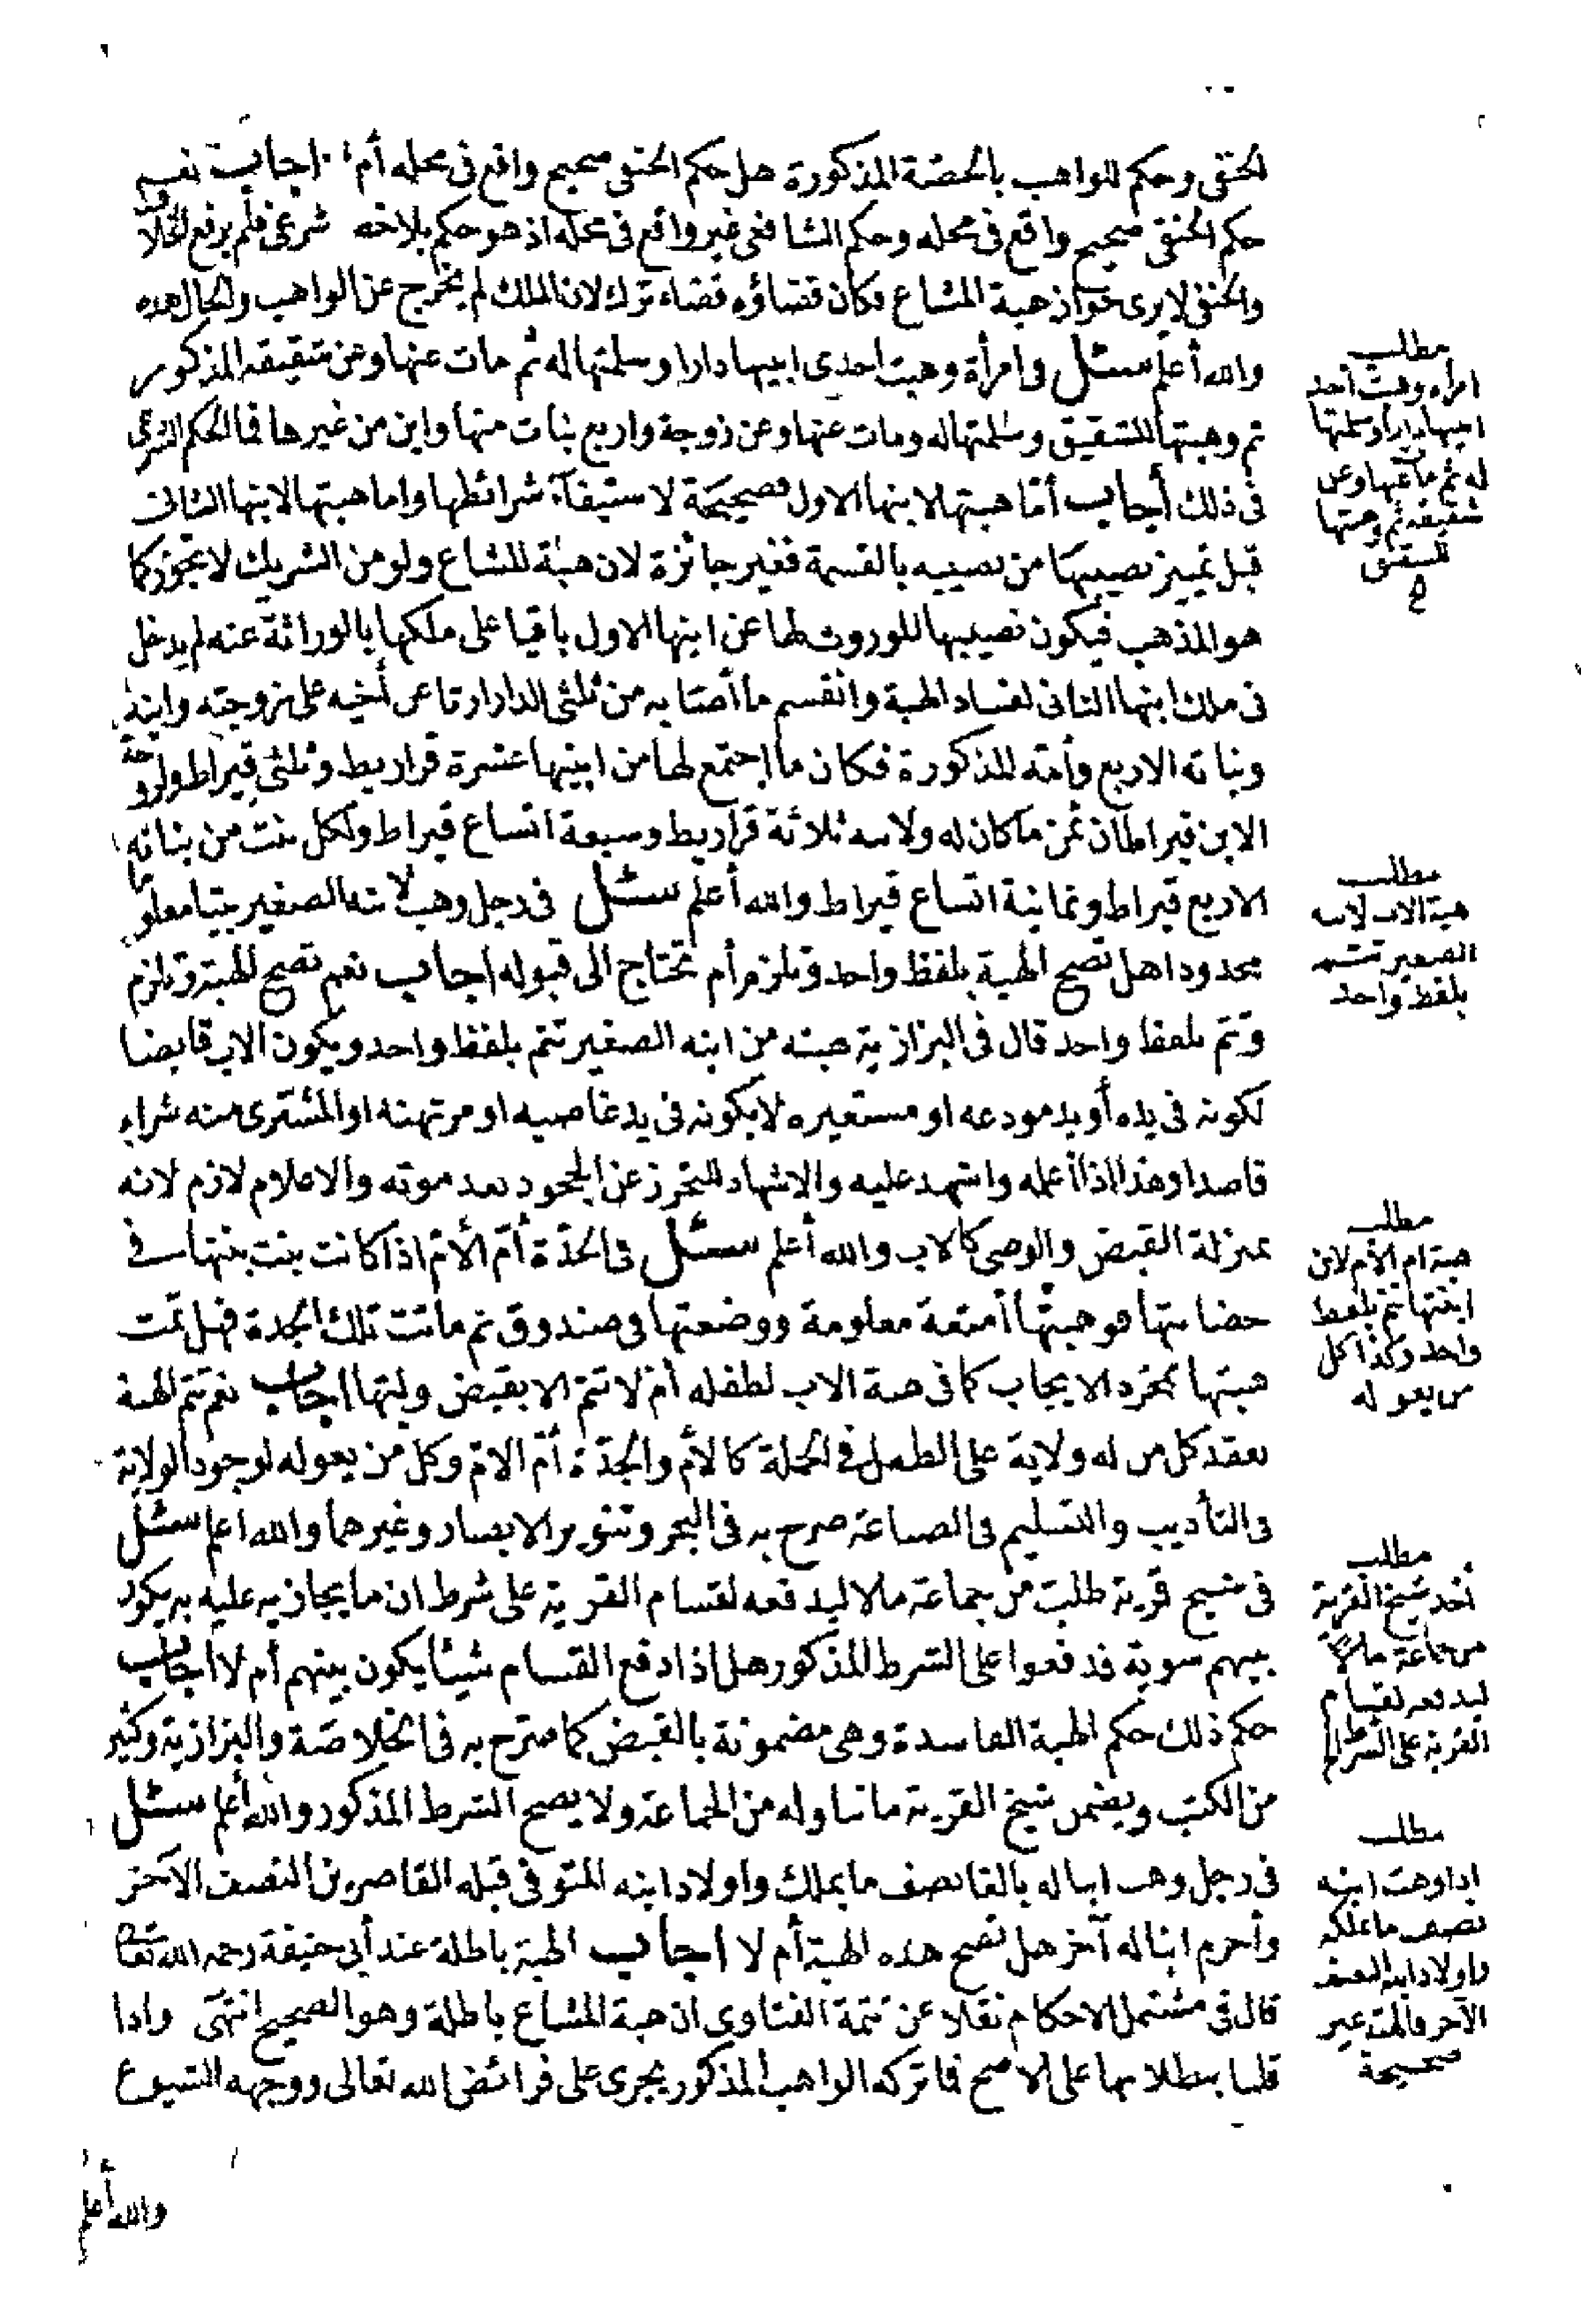 الحنفى وحكم للواهب بالحصّة المذكورة هل حكم الحنفى صحيح واقع فى محله أم اجاب نعم
حكم الحنفى صحيح واقع فى محله وحكم الشافعى غير واقع فى محله اذ هو حكم بلا شرعى فلم يرفع الخلاف
والحنفى لا يرى جواز هبة المشاع فكان قضاؤه قضاء ترك لان الملك لم يخرج عن الواهب والحال هذه
والله أعلم سئل فى امرأة وهبت احدى ابنيها دارا وسلمتها له ثم مات عنها وعن شقيقه المذكور
ثم وهبتها للشقيق وسلمتها له ومات عنها وعن زوجة واربع بنات منها وابن من غيرها فما الحكم الشرعى
فى ذلك أجاب أمّا هبتها لابنها الاول فصحيحة لاستيفآء شرائطها واما هبتها لابنها الثانى
قبل تمييز نصيبها من نصيبه بالقسمة فغير جائزة لان هبة المشاع ولو من الشريك لا تجوز كما
هو المذهب فيكون نصيبها الموروث لها عن ابنها الاول باقيا على ملكها بالوراثة عنه لم يدخل
فى ملك ابنها الثانى لفساد الهبة وانقسم ما أصابه من ثلثى الدار ارثا عن أخيه على زوجته وابنه
وبناته الاربع وأمّه المذكورة فكان ما اجتمع لها من ابنيها عشرة قراريط وثلثى قيراط ولزوجة
الابن قيراطان ثمن ما كان له ولابنه ثلاثة قراريط وسبعة اتساع قيراط ولكل بنت من بناته
الاربع قيراط وثمانية اتساع قيراط والله أعلم سئل فى رجل وهب لابنه الصغير بيتا معلوما
محدودا هل تصح الهبة بلفظ واحد وتلزم أم تحتاج الى قبوله اجاب نعم تصح الهبة وتلزم
وتتمّ بلفظ واحد قال فى البزازية هبته من ابنه الصغير تتم بلفظ واحد ويكون الاب قابضا
لكونه فى يده أو يد مودعه او مستعيره لا بكونه فى يد غاصبه او مرتهنه او المشترى منه شراء
فاسدا وهذا اذا أعلمه واشهد عليه والاشهاد للتحرز عن الجحود بعد موته والاعلام لازم لانه
بمنزلة القبض والوصى كالاب والله أعلم سئل فى الجدّة أمّ الأمّ اذا كانت بنت بنتها فى
حضانتها فوهبتها أمتعة معلومة ووضعتها فى صندوق ثم ماتت تلك الجدة فهل تمّت
هبتها بمجرّد الايجاب كما فى هبة الاب لطفله أم لا تتمّ الا بقبض وليّها اجاب نعم تتمّ الهبة
بعقد كل من له ولاية على الطفل فى الجملة كالأم والجدّة أمّ الامّ وكل من يعوله لوجود الولاية
فى التأديب والتسليم فى الصناعة صرح به فى البحر وتنوير الابصار وغيرهما والله اعلم سئل
فى شيخ قرية طلب من جماعة مالا ليدفعه لقسام القرية على شرط ان ما يجازيه عليه به يكون
بينهم سوية فدفعوا على الشرط المذكور هل اذا دفع القسام شيئا يكون بينهم أم لا اجاب
حكم ذلك حكم الهبة الفاسدة وهى مضمونة بالقبض كما صرّح به فى الخلاصة والبزازية وكثير
من الكتب ويضمن شيخ القرية ما تناوله من الجماعة ولا يصح الشرط المذكور والله أعلم سئل
فى رجل وهب ابنا له بالغا نصف ما يملك واولاد ابنه المتوفى قبله القاصرين النصف الآخر
وأحرم ابنا له آخر هل تصح هذه الهبة أم لا اجاب الهبة باطلة عند أبى حنيفة رحمه الله تعالى
قال فى مشتمل الاحكام نقلا عن تتمة الفتاوى ان هبة المشاع باطلة وهو الصحيح انتهى واذا
قلنا ببطلانها على الاصح فما تركه الواهب المذكور يجرى على فرائض الله تعالى ووجهه الشيوع
والله أعلم
مطلب
امرأة وهبت احد
ابنيها دارا وسلمتها
له ثم مات عنها وعن
شقيقه ثم وهبتها
للشقيق
مطلب
هبة الاب لابنه
الصغير تتم
بلفظ واحد
مطلب
هبة ام الأم لابن
ابنتها تتم بلفظ
واحد وكذا كل
من يعوله
مطلب
أخذ شيخ القرية
من جماعة مالا
ليدفعه لقسام
القرية على الشرط
مطلب
اذا وهب ابنه
نصف ما يملكه
واولاد ابنه النصف
الآخر فالهبة غير
صحيحة